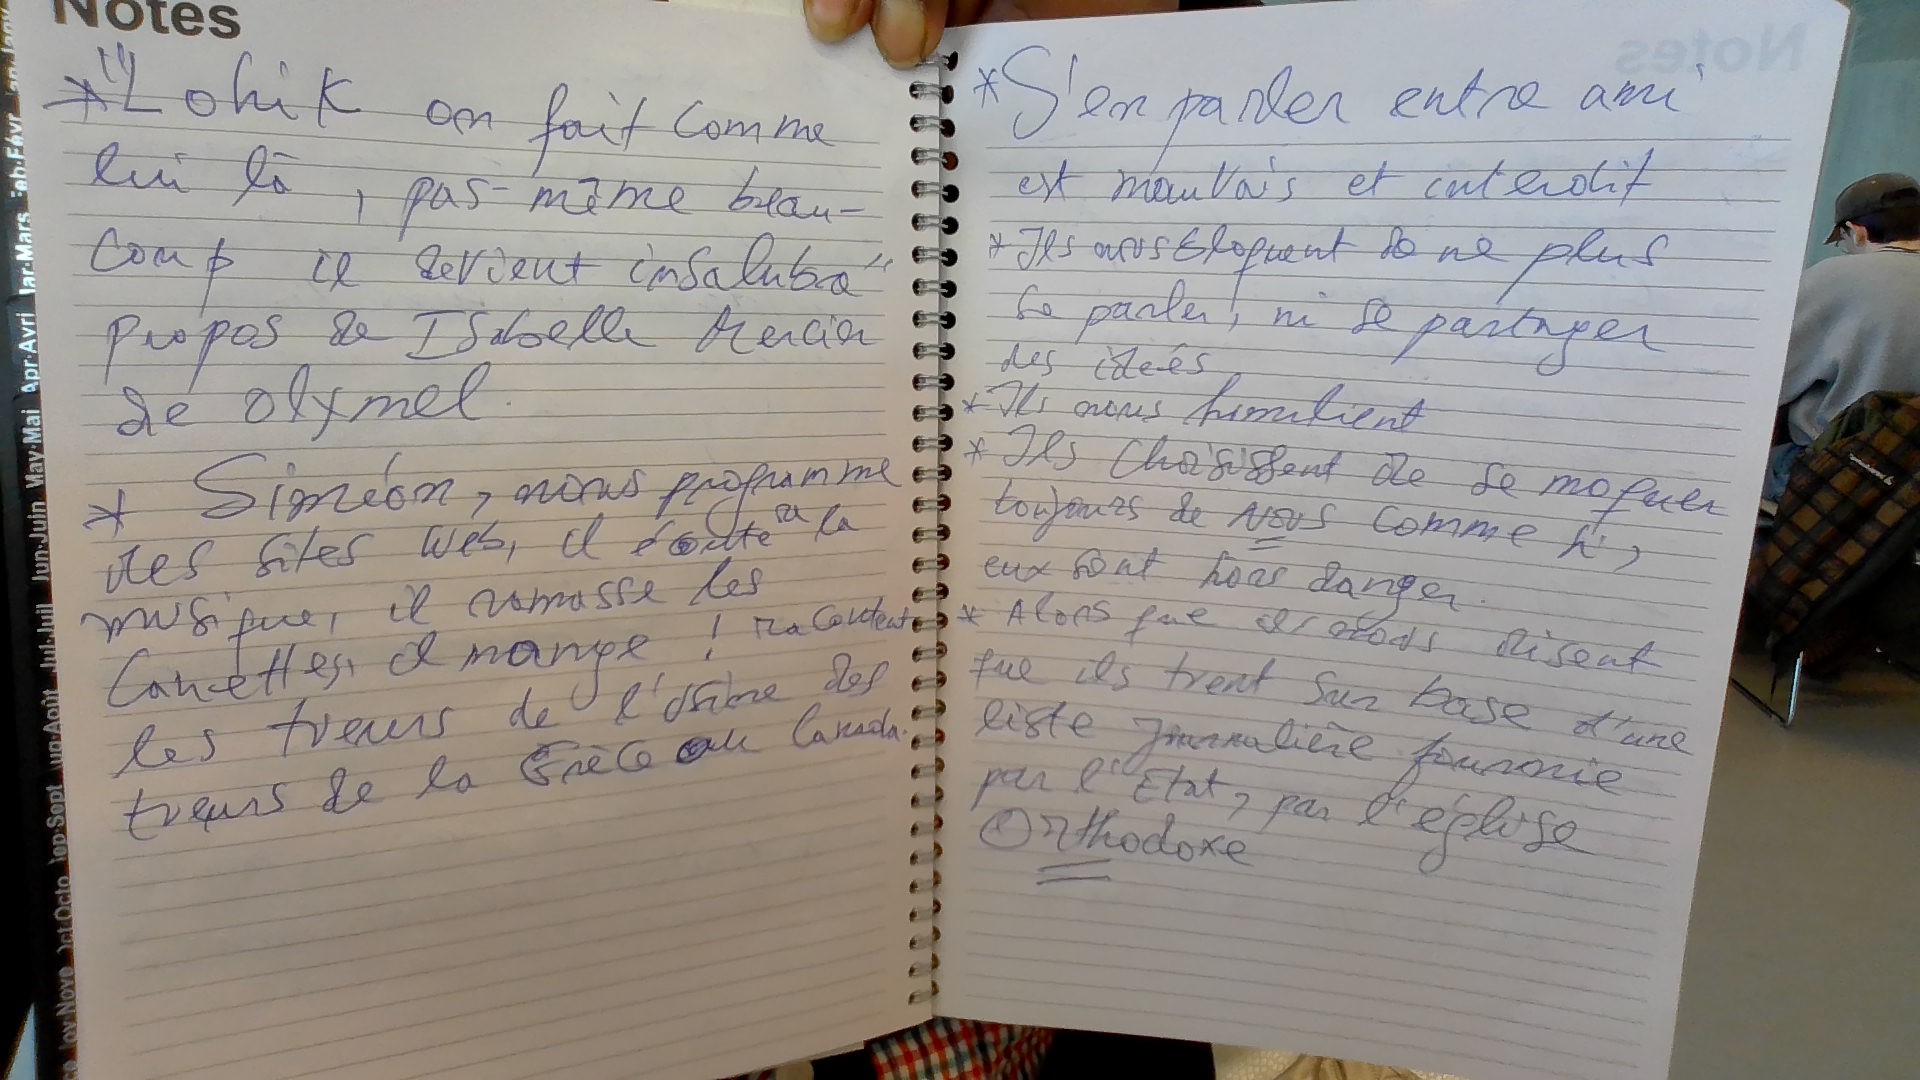 Notes
* "Lohik on fait comme
lui là, pas-même beau-
coup il devient insalubre"
propos de Isabelle Mercier
de olymel.
* Siméon, nous programme
des sites web, il écoute à la
musique, il ramasse les
Canettes, il mange ! racontent
les tueurs de l'usine des
tueurs de la Grèce au Canada.
* S'en parler entre ami
est mauvais et interdit
* Ils nous bloquent de ne plus
se parler, ni se partager
des idées
* Ils nous humilient
* Ils choisissent de se moquer
toujours de nous comme si,
eux sont hors danger.
* Alors que disent
que ils tuent sur base d'une
liste journalière fournie
par l'Etat, par l'église
Orthodoxe
Jan Mars
Apr Avri
May Mai
Jun Juin
Jul Juil
Aug Août
Sep Sept
Oct Octo
Nov Nove